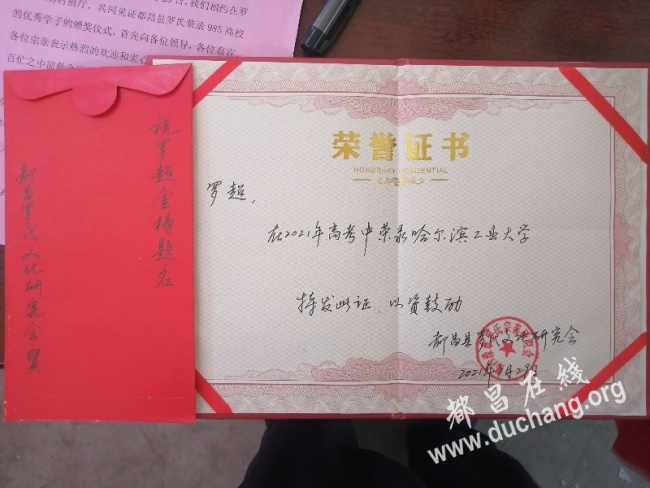 日,我们相约在罗
厅,共同见证都昌县罗氏荣录985院校
的优秀学子的颁奖仪式,首先向各位领导,各位嘉宾
各位宗张表示热烈的欢迎和衷心
百忙之中
祝罗超金榜题名
都昌罗氏文化研究会贺
荣誉证书
HONORARY CREDENTIAL
罗超,
在2021年高考中荣录哈尔滨工业大学
特发此证,以资鼓励
都昌县罗氏文化研究会
2021年 月29日
都昌在线
www.duchang.org